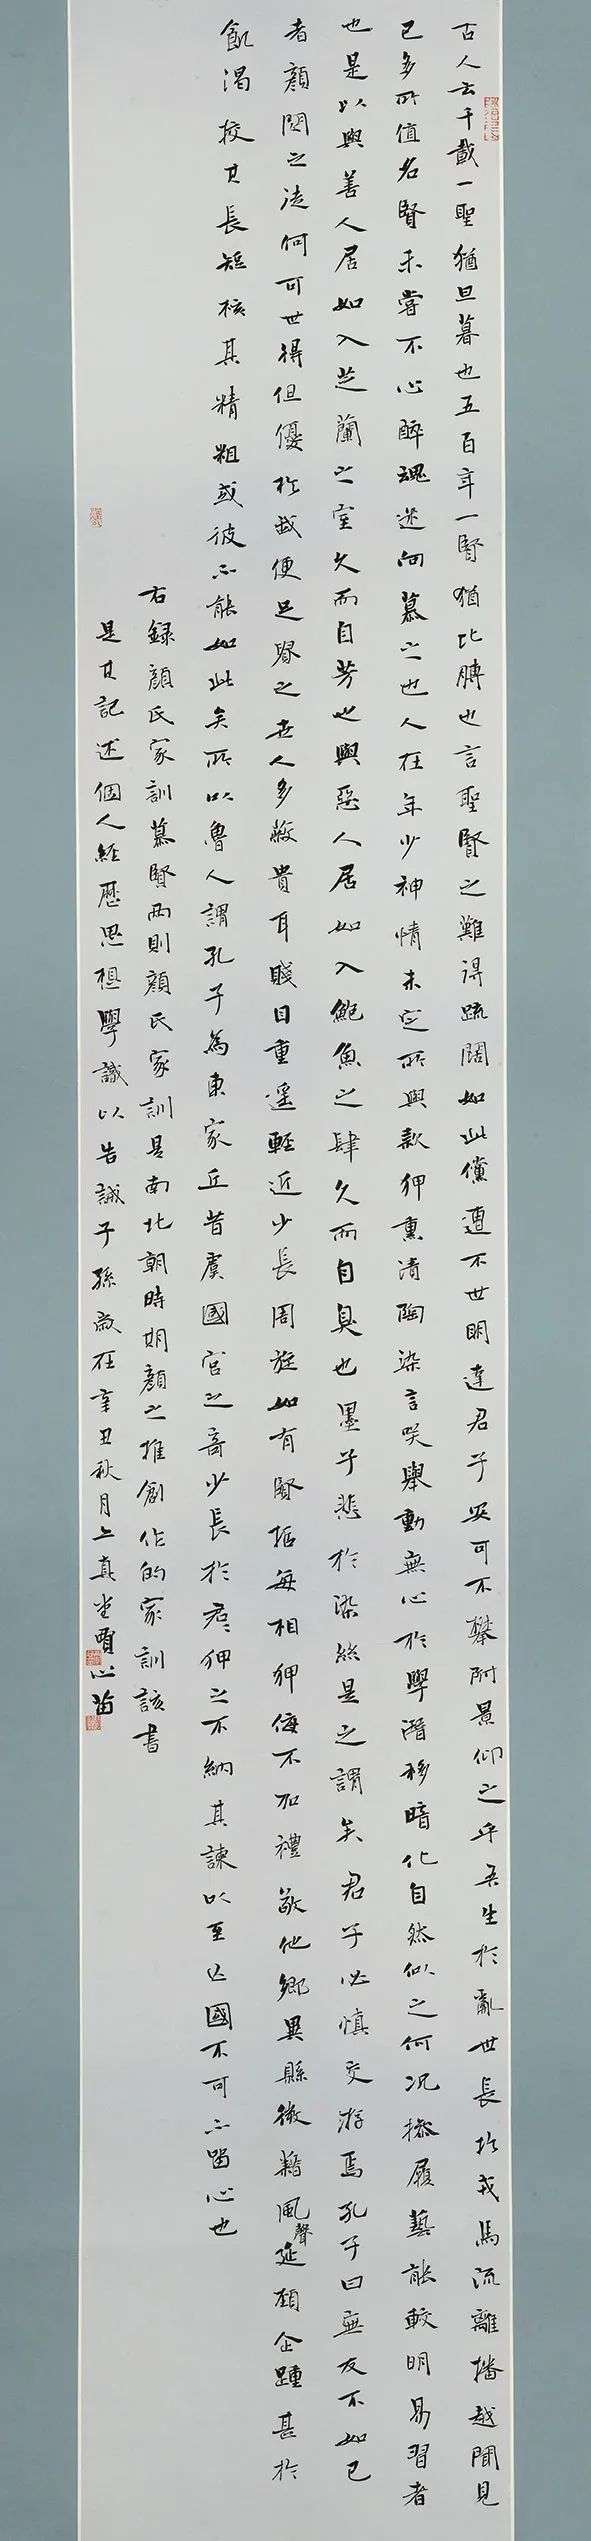 古人云千載一聖猶旦暮也五百年一賢猶比膊也言聖賢之難得疏闊如此儻遭不世明達君子安可不攀附景仰之乎吾生於亂世長於戎馬流離播越聞見
已多所值名賢未嘗不心醉魂迷向慕之也人在年少神情未定所與款狎熏漬陶染言笑舉動無心於學潛移暗化自然似之何況操履藝能較明易習者
也是以與善人居如入芝蘭之室久而自芳也與惡人居如入鮑魚之肆久而自臭也墨子悲於染絲是之謂矣君子必慎交游焉孔子曰無友不如己
者顏閔之徒何可世得但優於我便足貴之世人多蔽貴耳賤目重遥輕近少長周旋如有賢哲每相狎侮不加禮敬他鄉異縣微藉風聲延頸企踵甚於
飢渴校其長短核其精粗或彼不能如此矣所以魯人謂孔子為東家丘昔虞國宮之奇少長於君君狎之不納其諫以至亡國不可不留心也
右録顏氏家訓慕賢兩則顏氏家訓是南北朝時期顏之推創作的家訓該書
是其記述個人經歷思想學識以告誡子孫歲在辛丑秋月上真堂賈心笛